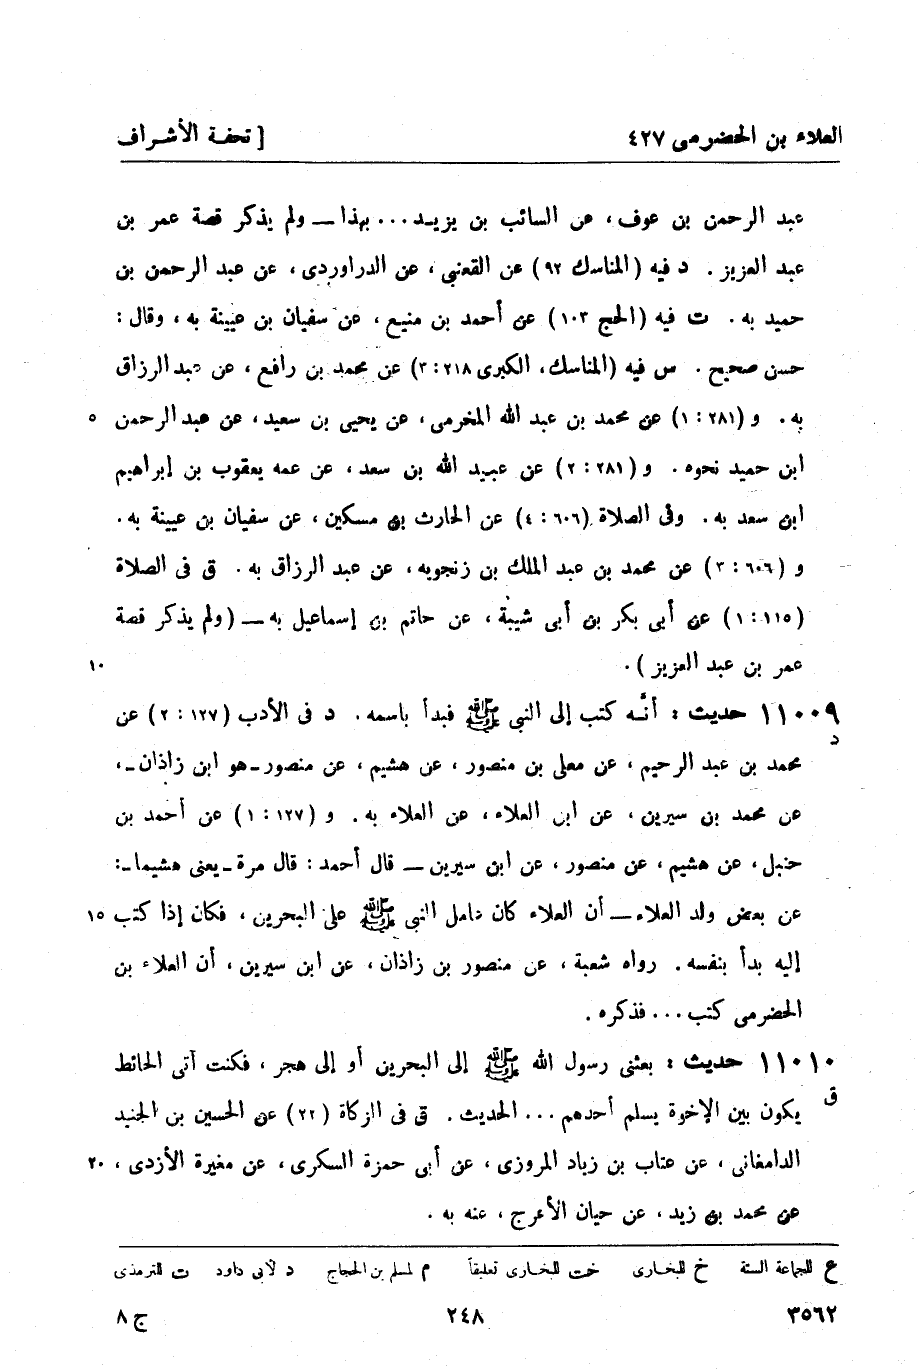 العلاء بن الحضرمى ٤٢٧ [ تحفة الأشراف
عبد الرحمن بن عوف، عن السائب بن يزيد... بهذا ــ ولم يذكر قصة عمر بن
عبد العزيز . د فيه (المناسك ٩٢) عن القعنبى ، عن الدراوردى ، عن عبد الرحمن بن
حميد به . ت فيه (الحج ١٠٣) عن أحمد بن منيع ، عن سفيان بن عيينة به ، وقال :
حسن صحيح . س فيه (المناسك، الكبرى ٢١٨ : ٣) عن محمد بن رافع ، عن عبد الرزاق
به . و (٢٨١ : ١) عن محمد بن عبد الله المخرمى ، عن يحيى بن سعيد ، عن عبد الرحمن ٥
ابن حميد نحوه . و (٢٨١ : ٢) عن عبيد الله بن سعد ، عن عمه يعقوب بن إبراهيم
ابن سعد به . وفى الصلاة (٦٠٦ : ٤) عن الحارث بن مسكين ، عن سفيان بن عيينة به .
و (٦٠٦ : ٣) عن محمد بن عبد الملك بن زنجويه ، عن عبد الرزاق به . ق فى الصلاة
(١١٥ : ١) عن أبى بكر بن أبى شيبة ، عن حاتم بن إسماعيل به ــ (ولم يذكر قصة
عمر بن عبد العزيز ) . ١٠
١١٠٠٩ حديث : أنَّه كتب إلى النبى ﷺ فبدأ باسمه . د فى الأدب (١٢٧ : ٢) عن
د
محمد بن عبد الرحيم ، عن معلى بن منصور ، عن هشيم ، عن منصور ـ هو ابن زاذان ـ ،
عن محمد بن سيرين ، عن ابن العلاء ، عن العلاء به . و (١٢٧ : ١) عن أحمد بن
حنبل ، عن هشيم ، عن منصور ، عن ابن سيرين ــ قال أحمد : قال مرة ـ يعنى هشيما ـ :
عن بعض ولد العلاء ــ أن العلاء كان عامل النبى ﷺ على البحرين ، فكان إذا كتب ١٥
إليه بدأ بنفسه . رواه شعبة ، عن منصور بن زاذان ، عن ابن سيرين ، أن العلاء بن
الحضرمى كتب... فذكره .
١١٠١٠ حديث : بعثنى رسول الله ﷺ إلى البحرين أو إلى هجر ، فكنت آتى الحائط
ق
يكون بين الإخوة يسلم أحدهم ... الحديث . ق فى الزكاة (٢٢) عن الحسين بن الجنيد
الدامغانى ، عن عتاب بن زياد المروزى ، عن أبى حمزة السكرى ، عن مغيرة الأزدى ، ٢٠
عن محمد بن زيد ، عن حيان الأعرج ، عنه به .
ع للجماعة الستة خ للبخارى خت للبخارى تعليقاً م لمسلم بن الحجاج د لأبى داود ت للترمذى
٣٥٦٢ ٢٤٨ ج ٨